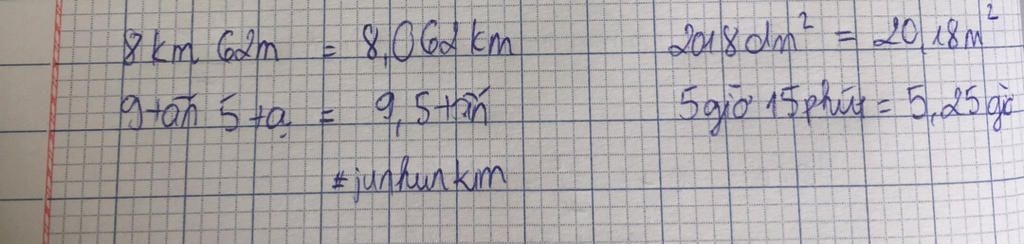 8km 62m = 8,062km 2018dm² = 20,18m²
9 tấn 5 tạ = 9,5 tấn 5 giờ 15 phút = 5,25 giờ
#junhunkm